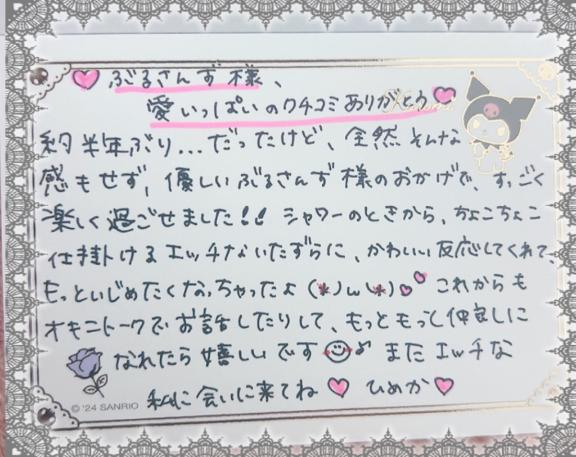 ♡ ぶるさんず様、
愛いっぱいのクチコミありがとう♡
約半年ぶり...だったけど、全然そんな
感もせず、優しいぶるさんず様のおかげで、すっごく
楽しく過ごせました!! シャワーのときから、ちょこちょこ
仕掛けるエッチないたずらに、かわいい反応してくれて、
もっといじめたくなっちゃったよ(*)ω(*)♡♡ これからも
オキニトークでお話ししたりして、もっともっと仲良しに
なれたら嬉しいです☺♪ またエッチな
私に会いに来てね♡ ひめか♡
© '24 SANRIO